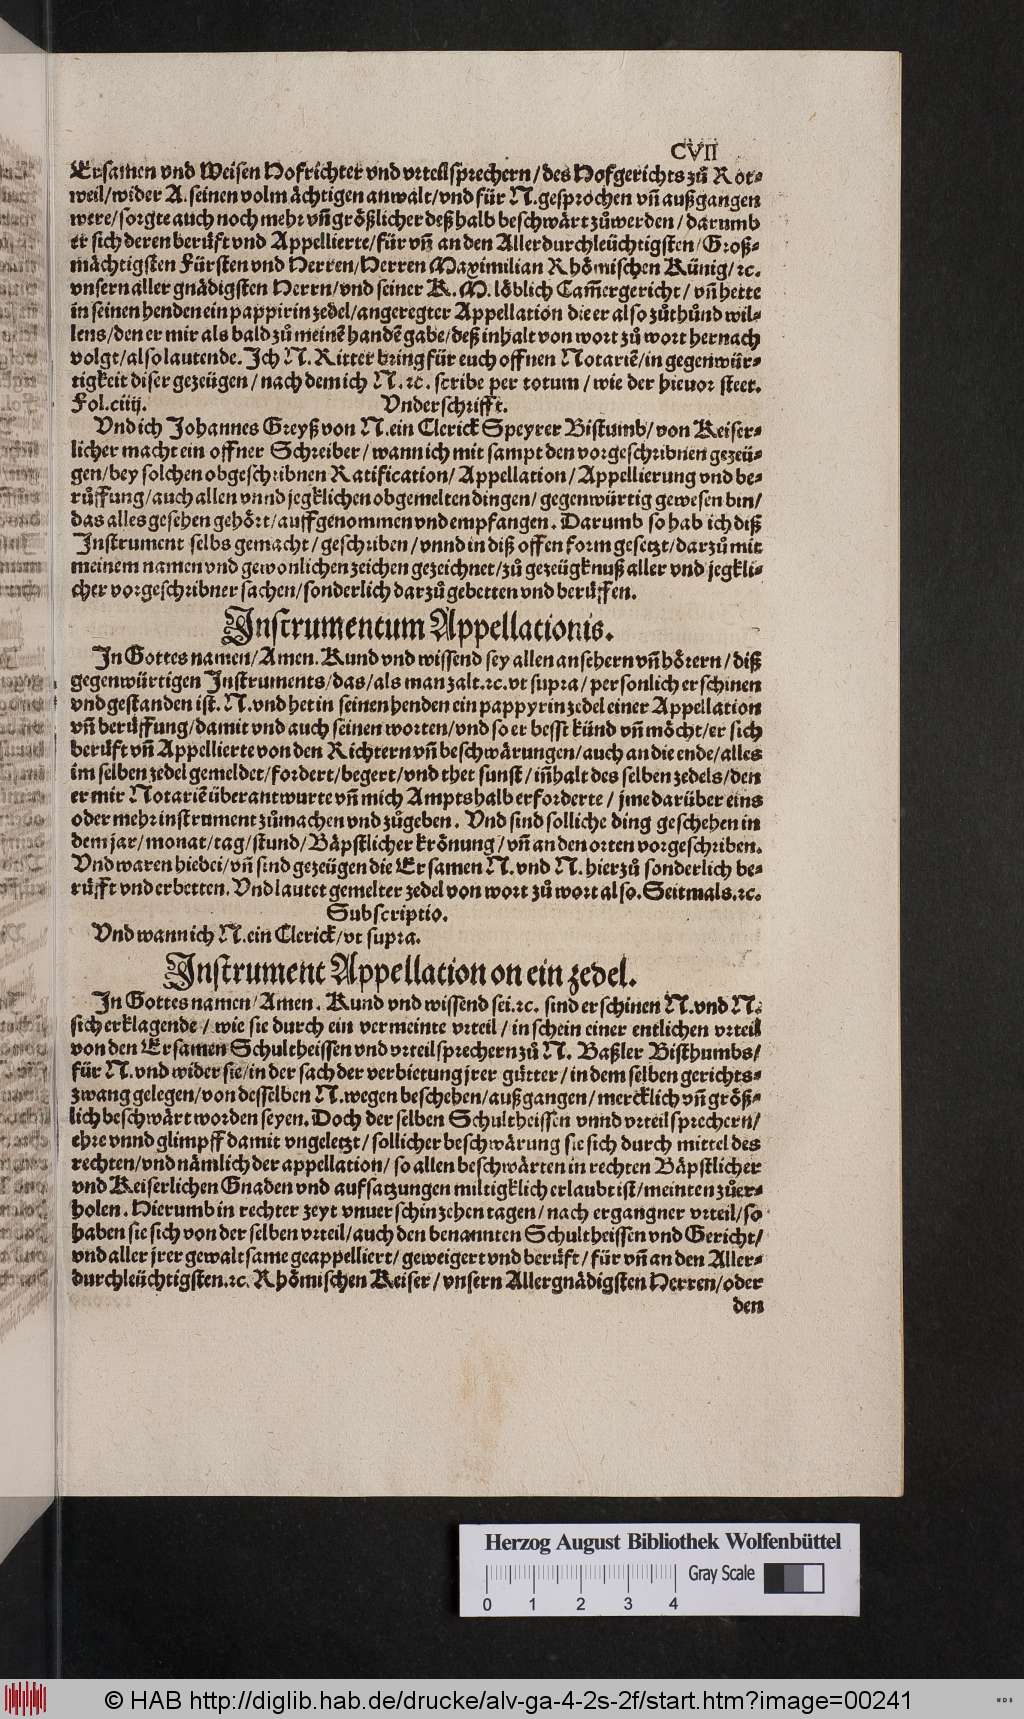 CVII
Ersamen vnd Weisen Hofrichter vnd vrteilsprechern / des Hofgerichts zů Rot⸗
weil/wider A. seinen volmächtigen anwalt/vnd für N. gesprochen vñ außgangen
were/sorgte auch noch mehr vñ größlicher deßhalb beschwärt zůwerden / darumb
er sich deren berůft vnd Appellierte/für vñ an den Allerdurchleüchtigsten/Groß⸗
mächtigsten Fürsten vnd Herren/Herren Maximilian Rhömischen Künig/ ꝛc.
vnsern aller gnädigsten Herrn/vnd seiner K. M. löblich Cam̃ergericht / vñ hette
in seinen henden ein pappirin zedel/angeregter Appellation die er also zůthůnd wil⸗
lens/den er mir als bald zů meinẽ handẽ gabe/deß inhalt von wort zů wort hernach
volgt/also lautende. Ich N. Ritter bring für euch offnen Notariẽ/in gegenwür⸗
tigkeit diser gezeügen / nach dem ich N. ꝛc. scribe per totum / wie der hieuor steet.
Fol.ciiij. Vnderschrifft.
Vnd ich Johannes Greyß von N. ein Clerick Speyrer Bistumb/ von Keiser⸗
licher macht ein offner Schreiber / wann ich mit sampt den vorgeschribnen gezeü⸗
gen/bey solchen obgeschribnen Ratification/ Appellation / Appellierung vnd be⸗
růffung/auch allen vnnd jegklichen obgemelten dingen/ gegenwürtig gewesen bin/
das alles gesehen gehört/auffgenommen vnd empfangen. Darumb so hab ich diß
Instrument selbs gemacht / geschriben / vnnd in diß offen form gesetzt/darzů mit
meinem namen vnd gewonlichen zeichen gezeichnet/zů gezeügknuß aller vnd jegkli⸗
cher vorgeschribner sachen/sonderlich darzů gebetten vnd berůffen.
Instrumentum Appellationis.
In Gottes namen/Amen. Kund vnd wissend sey allen ansehern vñ hörern / diß
gegenwürtigen Instruments/das/als man zalt.ꝛc.vt supra/ personlich erschinen
vnd gestanden ist. N. vnd het in seinen henden ein pappyrin zedel einer Appellation
vñ berůffung/damit vnd auch seinen worten/vnd so er besst künd vñ möcht/er sich
berůft vñ Appellierte von den Richtern vñ beschwärungen/auch an die ende/alles
im selben zedel gemeldet/fordert/begert/vnd thet sunst / iñhalt des selben zedels/den
er mir Notariẽ überantwurte vñ mich Amptshalb erforderte / jme darüber eins
oder mehr instrument zůmachen vnd zůgeben. Vnd sind solliche ding geschehen in
dem jar/monat/tag/stund/Bäpstlicher krönung / vñ an den orten vorgeschriben.
Vnd waren hiebei/vñ sind gezeügen die Ersamen N. vnd N. hierzů sonderlich be⸗
růfft vnd erbetten. Vnd lautet gemelter zedel von wort zů wort also. Seitmals.ꝛc.
Subscriptio.
Vnd wann ich N. ein Clerick/vt supra.
Instrument Appellation on ein zedel.
In Gottes namen/Amen. Kund vnd wissend sei.ꝛc. sind erschinen N. vnd N.
sich erklagende / wie sie durch ein vermeinte vrteil / in schein einer entlichen vrteil
von den Ersamen Schultheissen vnd vrteilsprechern zů N. Baßler Bisthumbs/
für N. vnd wider sie/in der sach der verbietung jrer gütter / in dem selben gerichts⸗
zwang gelegen/von desselben N. wegen beschehen/außgangen/mercklich vñ größ⸗
lich beschwärt worden seyen. Doch der selben Schultheissen vnnd vrteilsprechern/
ehre vnnd glimpff damit vngeletzt/ sollicher beschwärung sie sich durch mittel des
rechten/vnd nämlich der appellation/ so allen beschwärten in rechten Bäpstlicher
vnd Keiserlichen Gnaden vnd aufsatzungen miltigklich erlaubt ist/meinten zůer⸗
holen. Hierumb in rechter zeyt vnuerschinzehen tagen/ nach ergangner vrteil/so
haben sie sich von der selben vrteil/auch den benannten Schultheissen vnd Gericht/
vnd aller jrer gewaltsame geappelliert/ geweigert vnd berůft / für vñ an den Aller⸗
durchleüchtigsten.ꝛc. Rhömischen Keiser / vnsern Allergnädigsten Herren/oder
den
Herzog August Bibliothek Wolfenbüttel
Gray Scale
0 1 2 3 4
© HAB http://diglib.hab.de/drucke/alv-ga-4-2s-2f/start.htm?image=00241